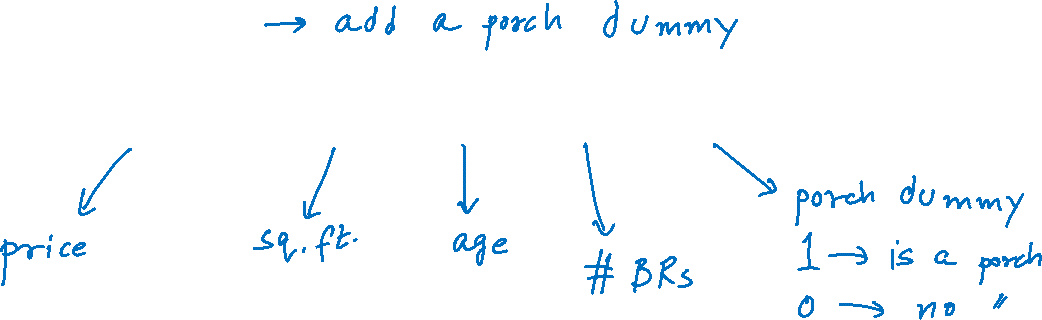 → add a porch dummy
price sq.ft. age # BRs porch dummy
1 → is a porch
0 → no "